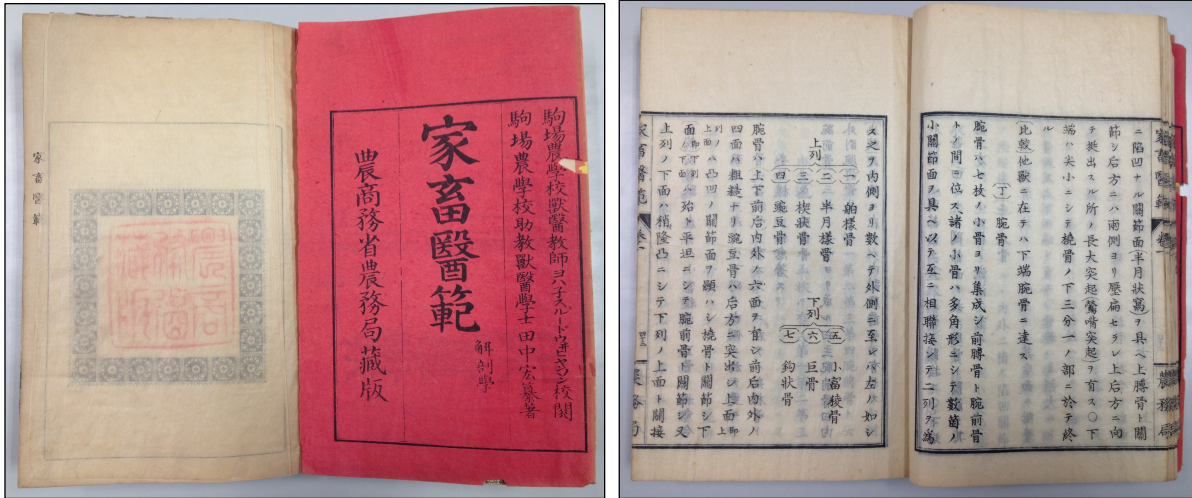 駒場農學校獸醫教師ヨハ子スルードウ井ヒヤンソン校閲
駒場農學校助教獸醫學士田中宏纂著
家畜醫範
解剖學
農商務省農務局藏版
家畜醫範
ニ陷凹ナル關節面(半月狀窩)ヲ具ヘ上膊骨ト關
節シ后方ニハ兩側ヨリ壓扁セラレ上后方ニ向
テ挺出スル所ノ長大突起(鶯嘴突起)ヲ有ス○下
端ハ尖小ニシテ橈骨ノ下三分一ノ部ニ於テ終
ル
(比較)他獸ニ在テハ下端腕骨ニ達ス
(丁) 腕骨
腕骨ハ七枚ノ小骨ヨリ集成シ前膊骨ト腕前骨
トノ間ニ位ス諸ノ小骨ハ多角形ニシテ數箇ノ
小關節面ヲ具ヘ以テ互ニ相聯接シテ二列ヲ為
ス之ヲ内側ヨリ數ヘテ外側ニ至レバ左ノ如シ
上列
(一) 舶様骨
(二) 半月樣骨
(三) 楔狀骨
(四) 豌豆骨
下列
(五) 小富稜骨
(六) 巨骨
(七) 鈎狀骨
腕骨ハ上下前后内外ノ六面ヲ有シ前后内外ノ
四面ハ粗糙ナリ豌豆骨ハ后方ニ突出シ上面(即
上列ノ上面)ハ凸凹ノ關節面ヲ顯ハシ橈骨ト關節シ下
面(即下列ノ下面)ハ殆ト平坦ニシテ腕前骨ト關節シ又
上列ノ下面ハ稍隆凸ニシテ下列ノ上面ト關接
家畜醫範
卷一
農務局